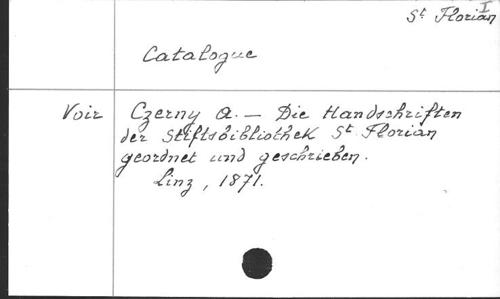 I
St Florian
Catalogue
Voir Czerny A. — Die Handschriften
der Stiftsbibliothek St Florian
geordnet und geschrieben.
Linz, 1871.